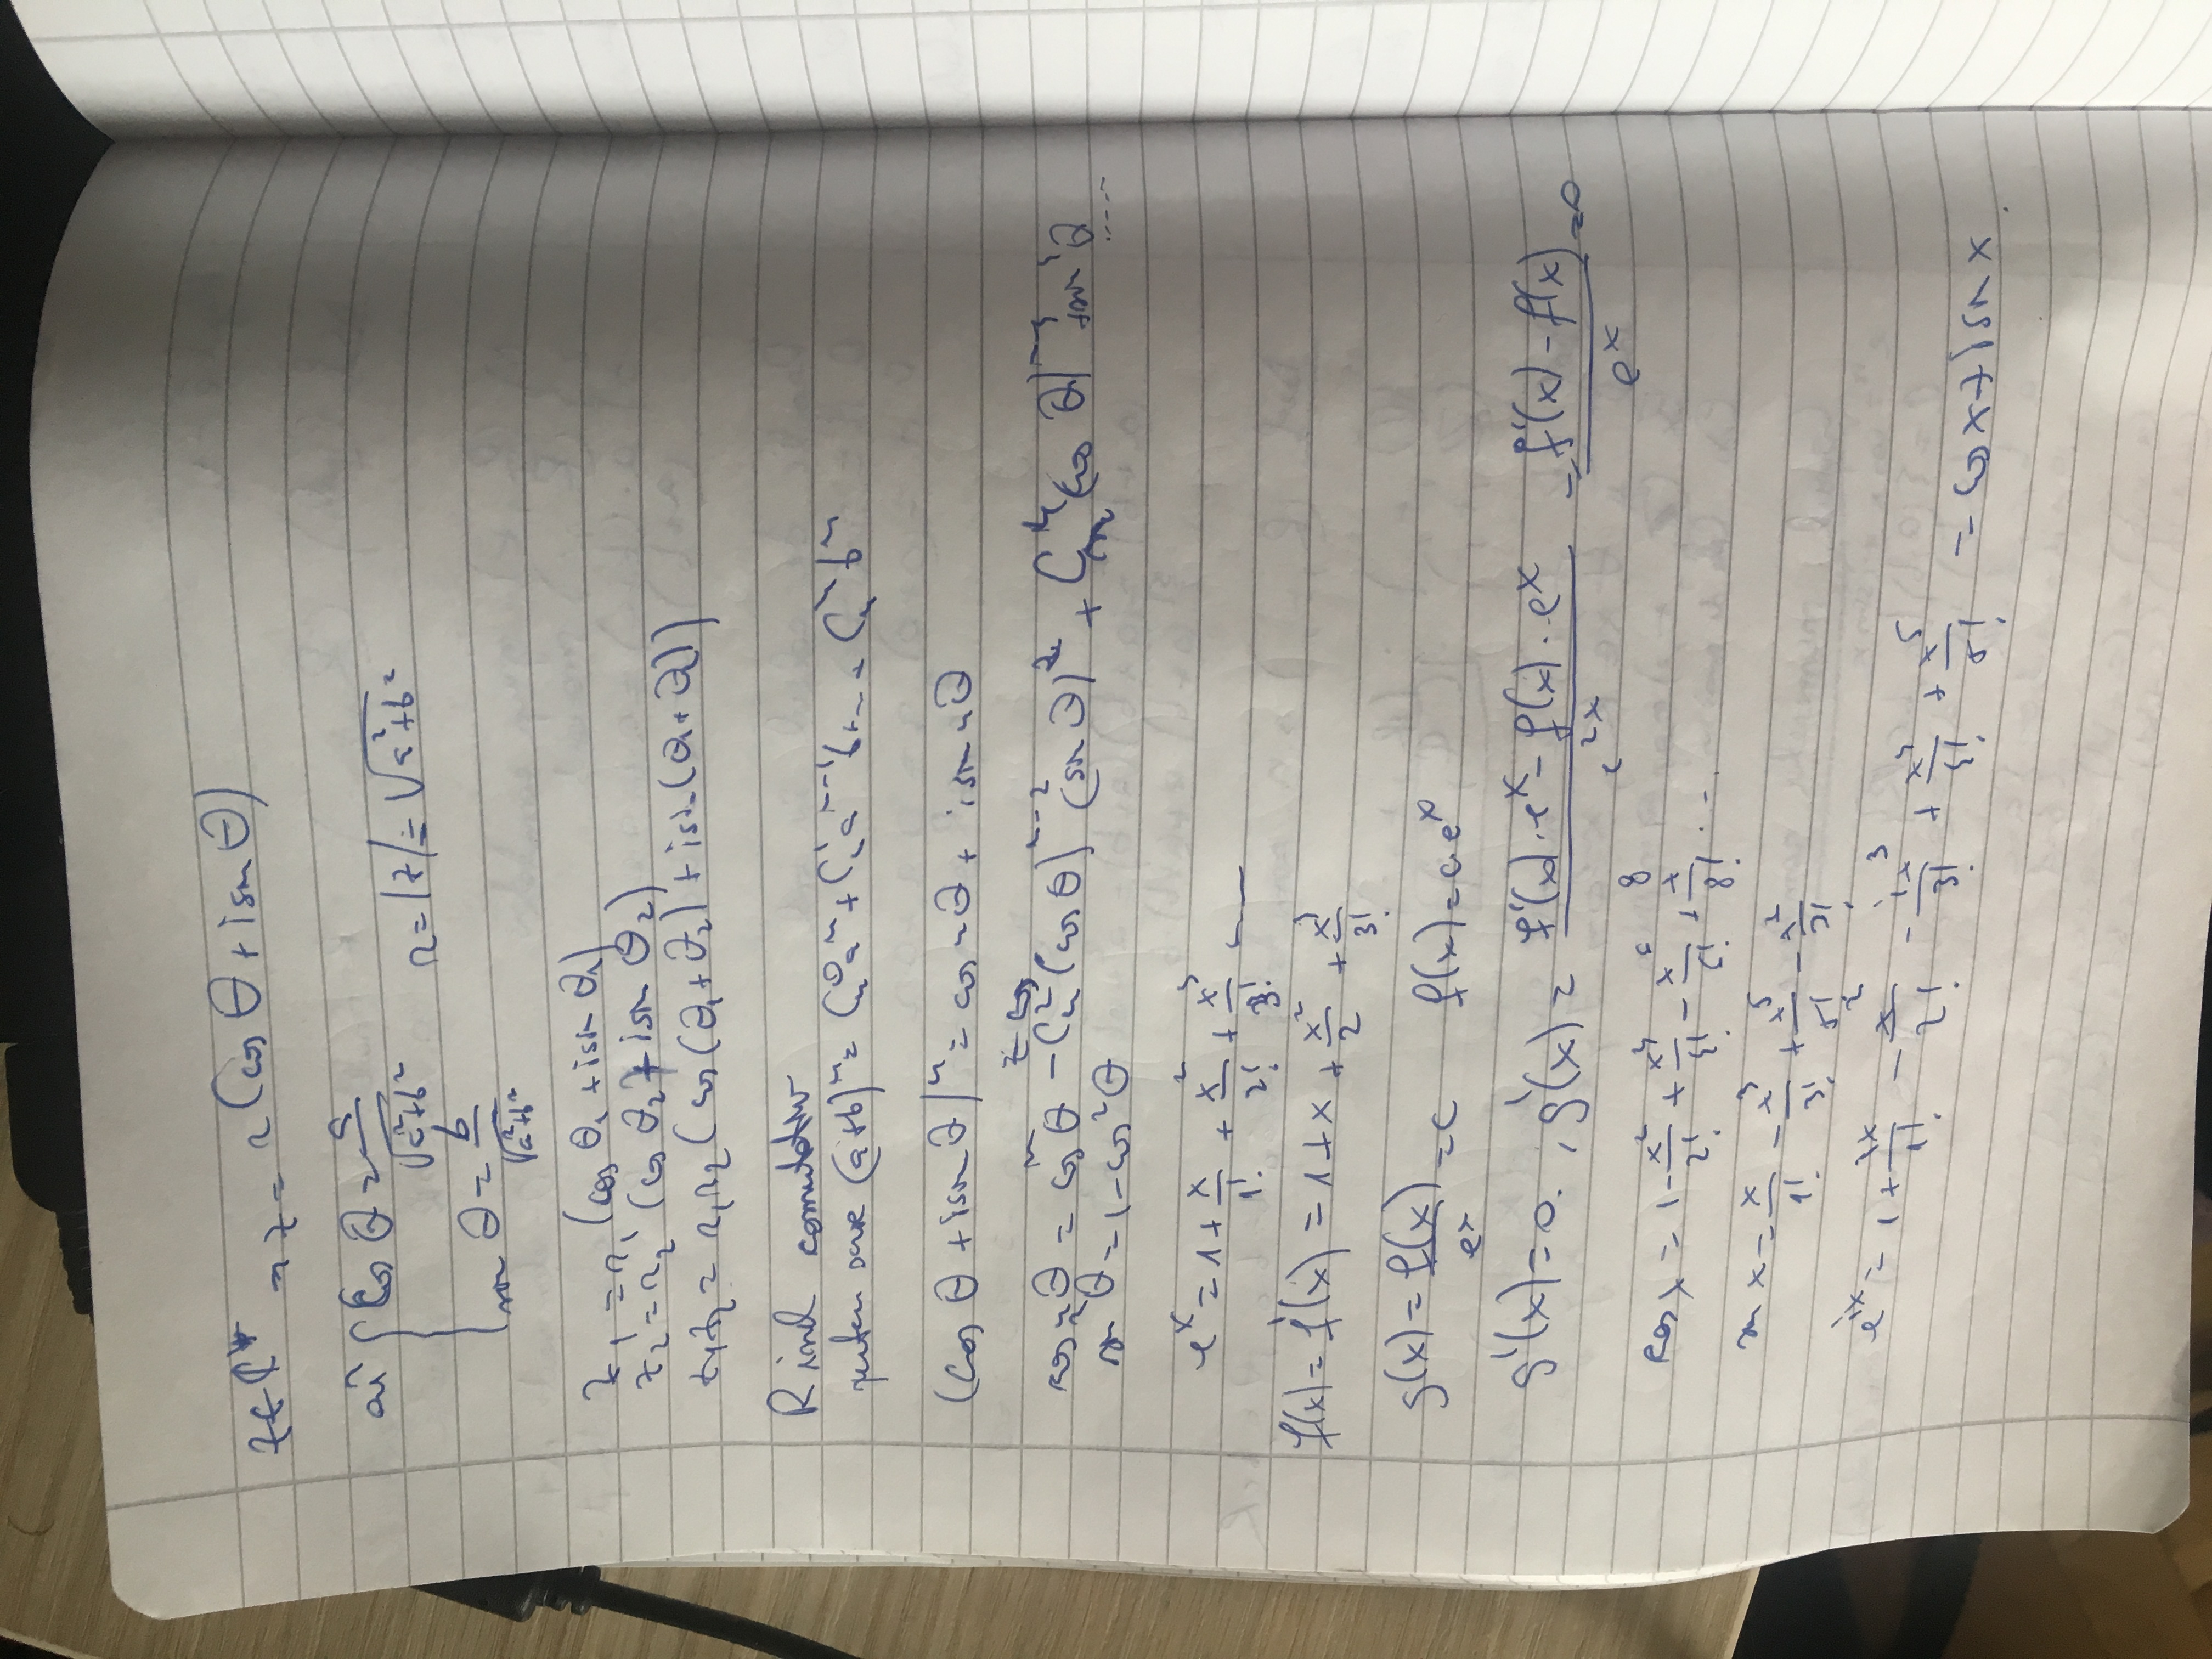 z∈ℂ* ⇒ z = r(cos θ + i sin θ)
où { cos θ = a/√(a²+b²)   r = |z| = √(a²+b²)
sin θ = b/√(a²+b²)
z1 = r1 (cos θ1 + i sin θ1)
z2 = r2 (cos θ2 + i sin θ2)
z1z2 = r1r2 (cos(θ1+θ2) + i sin(θ1+θ2))
R inel comutativ
putem scrie (a+b)ⁿ = Cₙ⁰aⁿ + Cₙ¹aⁿ⁻¹b + ... Cₙⁿbⁿ
(cos θ + i sin θ)ⁿ = cos nθ + i sin nθ
cos nθ = cosⁿ θ − Cₙ²(cos θ)ⁿ⁻² (sin θ)² + Cₙ⁴(cos θ)ⁿ⁻⁴ sin⁴θ ....
sin²θ = 1 − cos²θ
eˣ = 1 + x/1! + x²/2! + x³/3! + ——
f(x) = f'(x) = 1 + x + x²/2 + x³/3!
g(x) = f(x)/eˣ = c   f(x) = c eˣ
g'(x) = 0. , g'(x) = (f'(x)·eˣ − f(x)·eˣ)/e²ˣ = (f'(x) − f(x))/eˣ = 0
cos x = 1 − x²/2! + x⁴/4! − x⁶/6! + x⁸/8! ...
sin x = x/1! − x³/3! + x⁵/5! − x⁷/7!
eⁱˣ = 1 + ix/1! − x²/2! − ix³/3! + x⁴/4! + x⁵/5! = cos x + i sin x